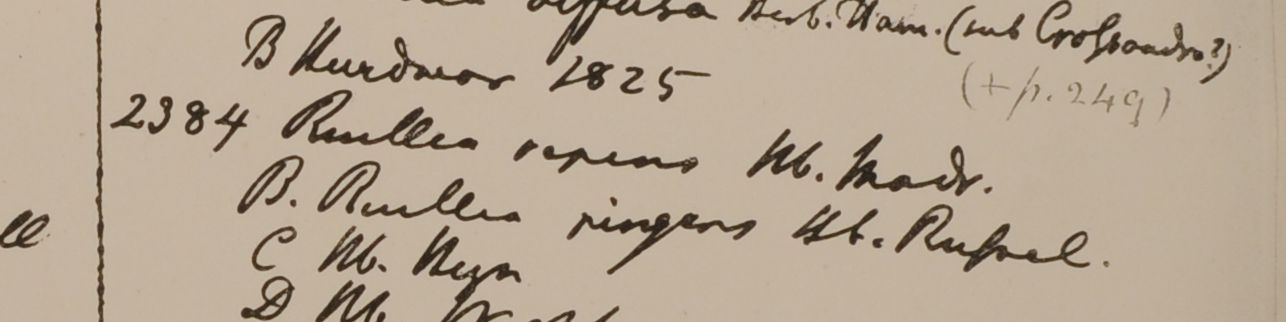 diffusa Herb. Ham. (sub Crossandra?)
B Hurdwar 1825
(+ p. 249)
2384 Ruellia repens Hb. Madr.
B. Ruellia ringens Hb. Russel.
C Hb. Heyn
D Hb.